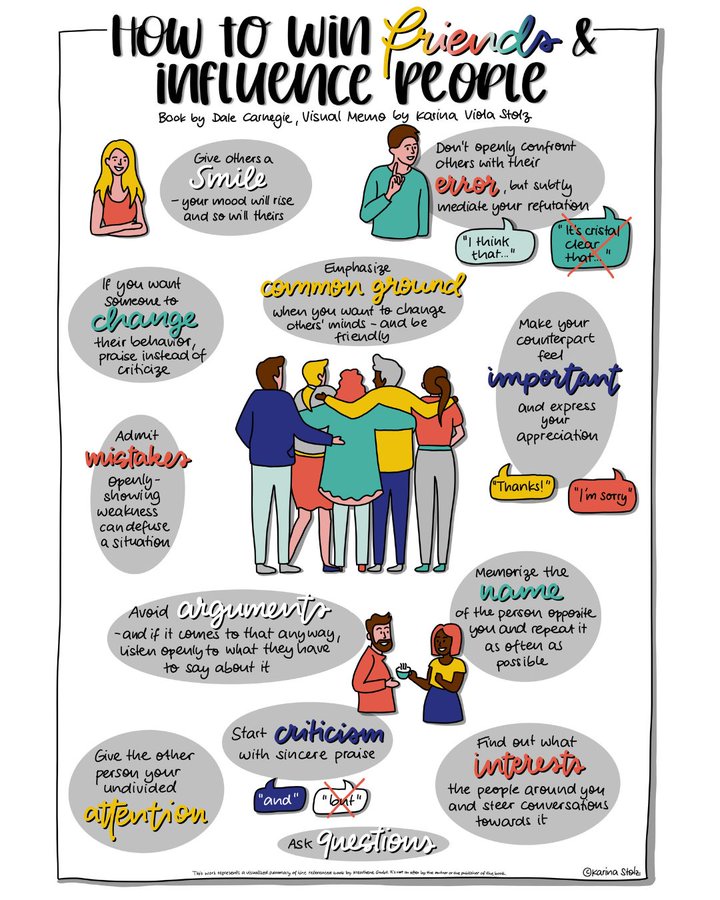 How to win friends &
influence People
Book by Dale Carnegie, Visual Memo by Karina Viola Stolz
Give others a
Smile
- your mood will rise
and so will theirs
Don't openly confront
others with their
error, but subtly
mediate your refutation
"I think
that..."
"It's cristal
clear
that..."
If you want
someone to
change
their behavior,
praise instead of
criticize
Emphasize
common ground
when you want to change
others' minds - and be
friendly
Make your
counterpart
feel
important
and express
your
appreciation
"Thanks!"
"I'm sorry"
Admit
mistakes
openly-
showing
weakness
can defuse
a situation
Memorize the
name
of the person opposite
you and repeat it
as often as
possible
Avoid arguments
-and if it comes to that anyway,
listen openly to what they have
to say about it
Start criticism
with sincere praise
"and"
"but"
Give the other
person your
undivided
attention
Find out what
interests
the people around you
and steer conversations
towards it
Ask questions
This work represents a visualized summary of the referenced book by
©Karina Stolz